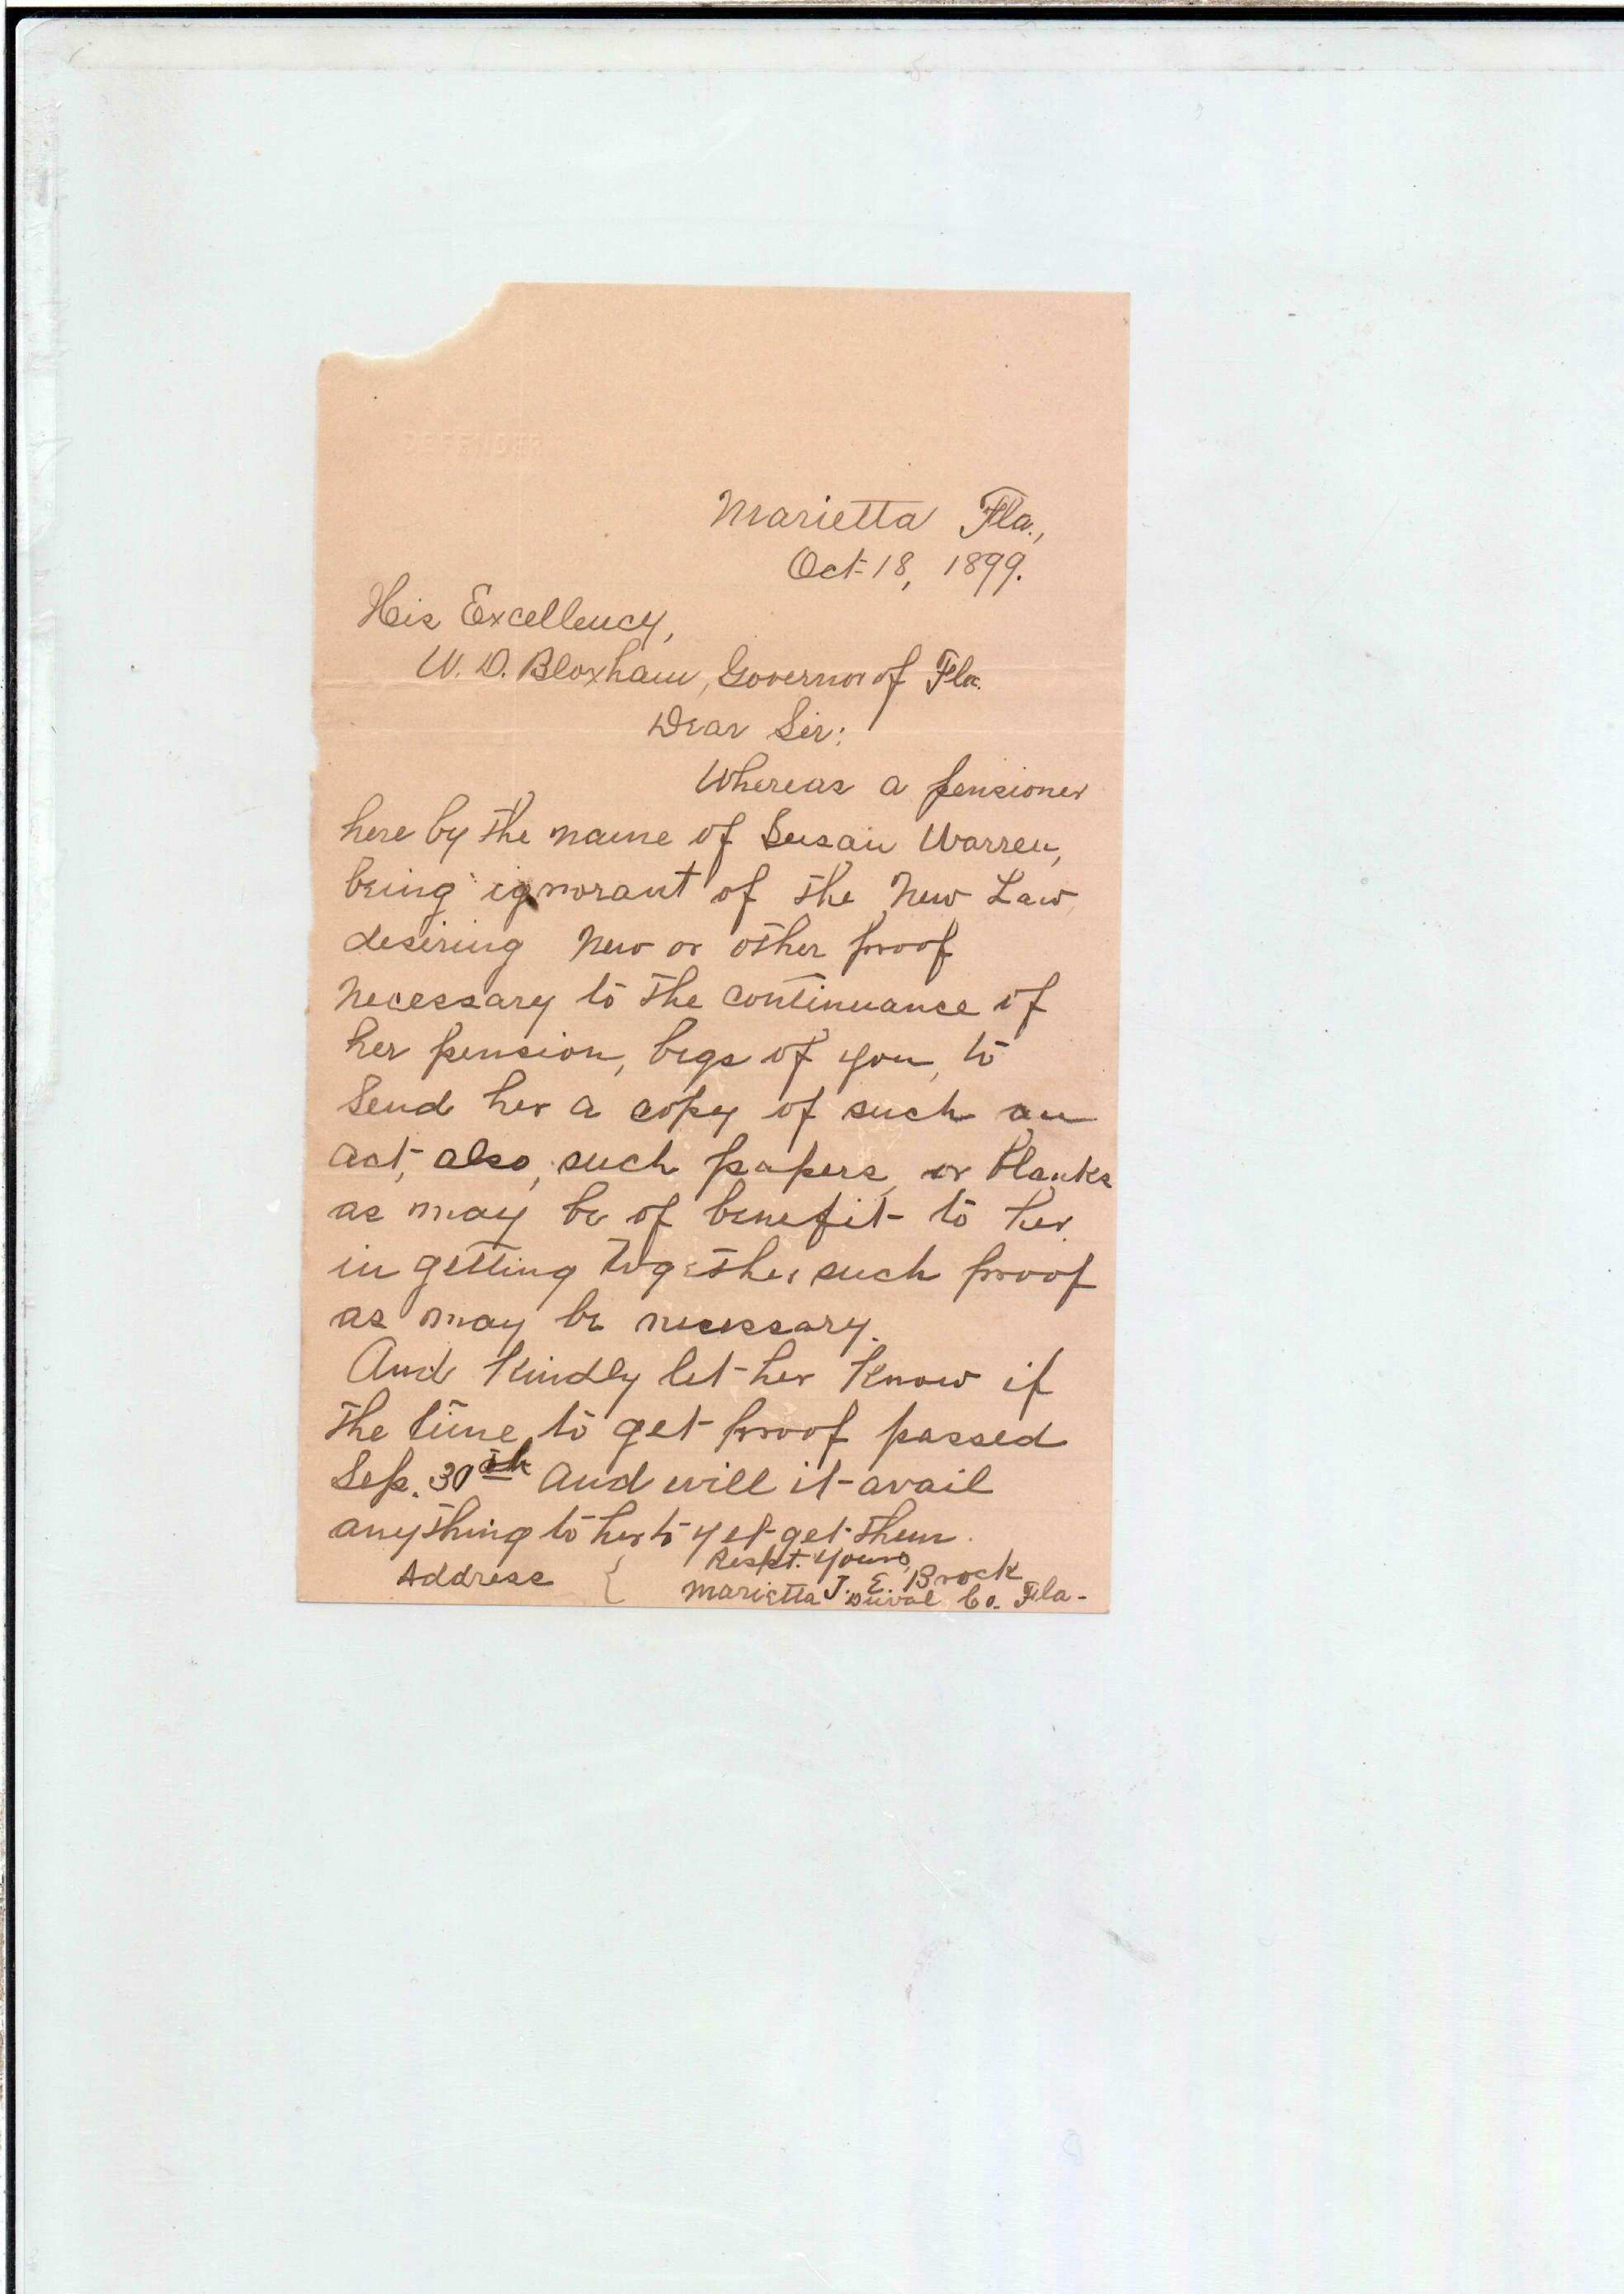 DEFENDER
Marietta Fla.,
Oct 18, 1899.
His Excellency,
W. D. Bloxham, Governor of Fla.
Dear Sir:
Whereas a pensioner
here by the name of Susan Warren,
being ignorant of the New Law
desiring New or other proof
necessary to the continuance of
her pension, begs of you, to
send her a copy of such an
act, also, such papers, or blanks
as may be of benefit to her
in getting together such proof
as may be necessary.
And kindly let her know if
the time to get proof passed
Sep. 30th And will it avail
anything to her to yet get them.
Respt. Yours,
Address { J. E. Brock
Marietta Duval Co. Fla-